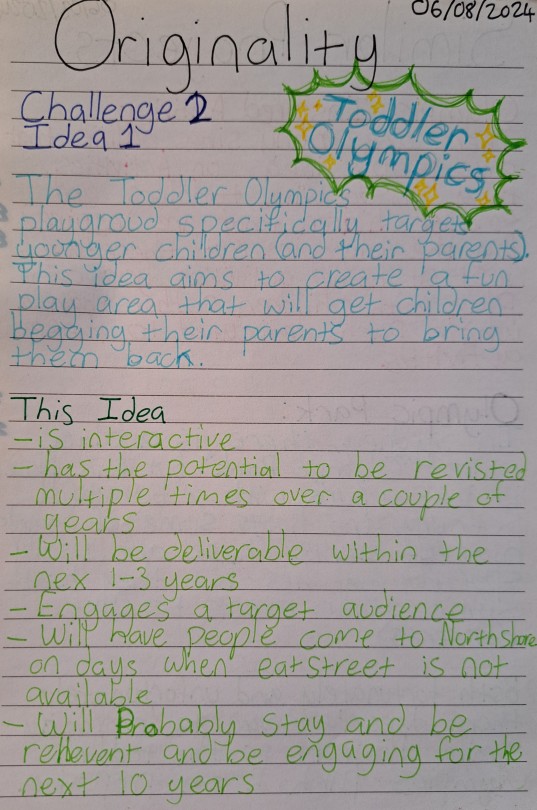 06/08/2024
Originality
Challenge 2
Idea 1
Toddler
Olympics
The Toddler Olympics
playgroud specifically targets
younger children (and their parents).
This idea aims to create a fun
play area that will get children
begging their parents to bring
them back.
This Idea
- is interactive
- has the potential to be revisted
multiple times over a couple of
years
- Will be deliverable within the
nex 1-3 years
- Engages a target audience
- Will have people come to Northshore
on days when eatstreet is not
available
- Will Probably stay and be
rellevent and be engaging for the
next 10 years